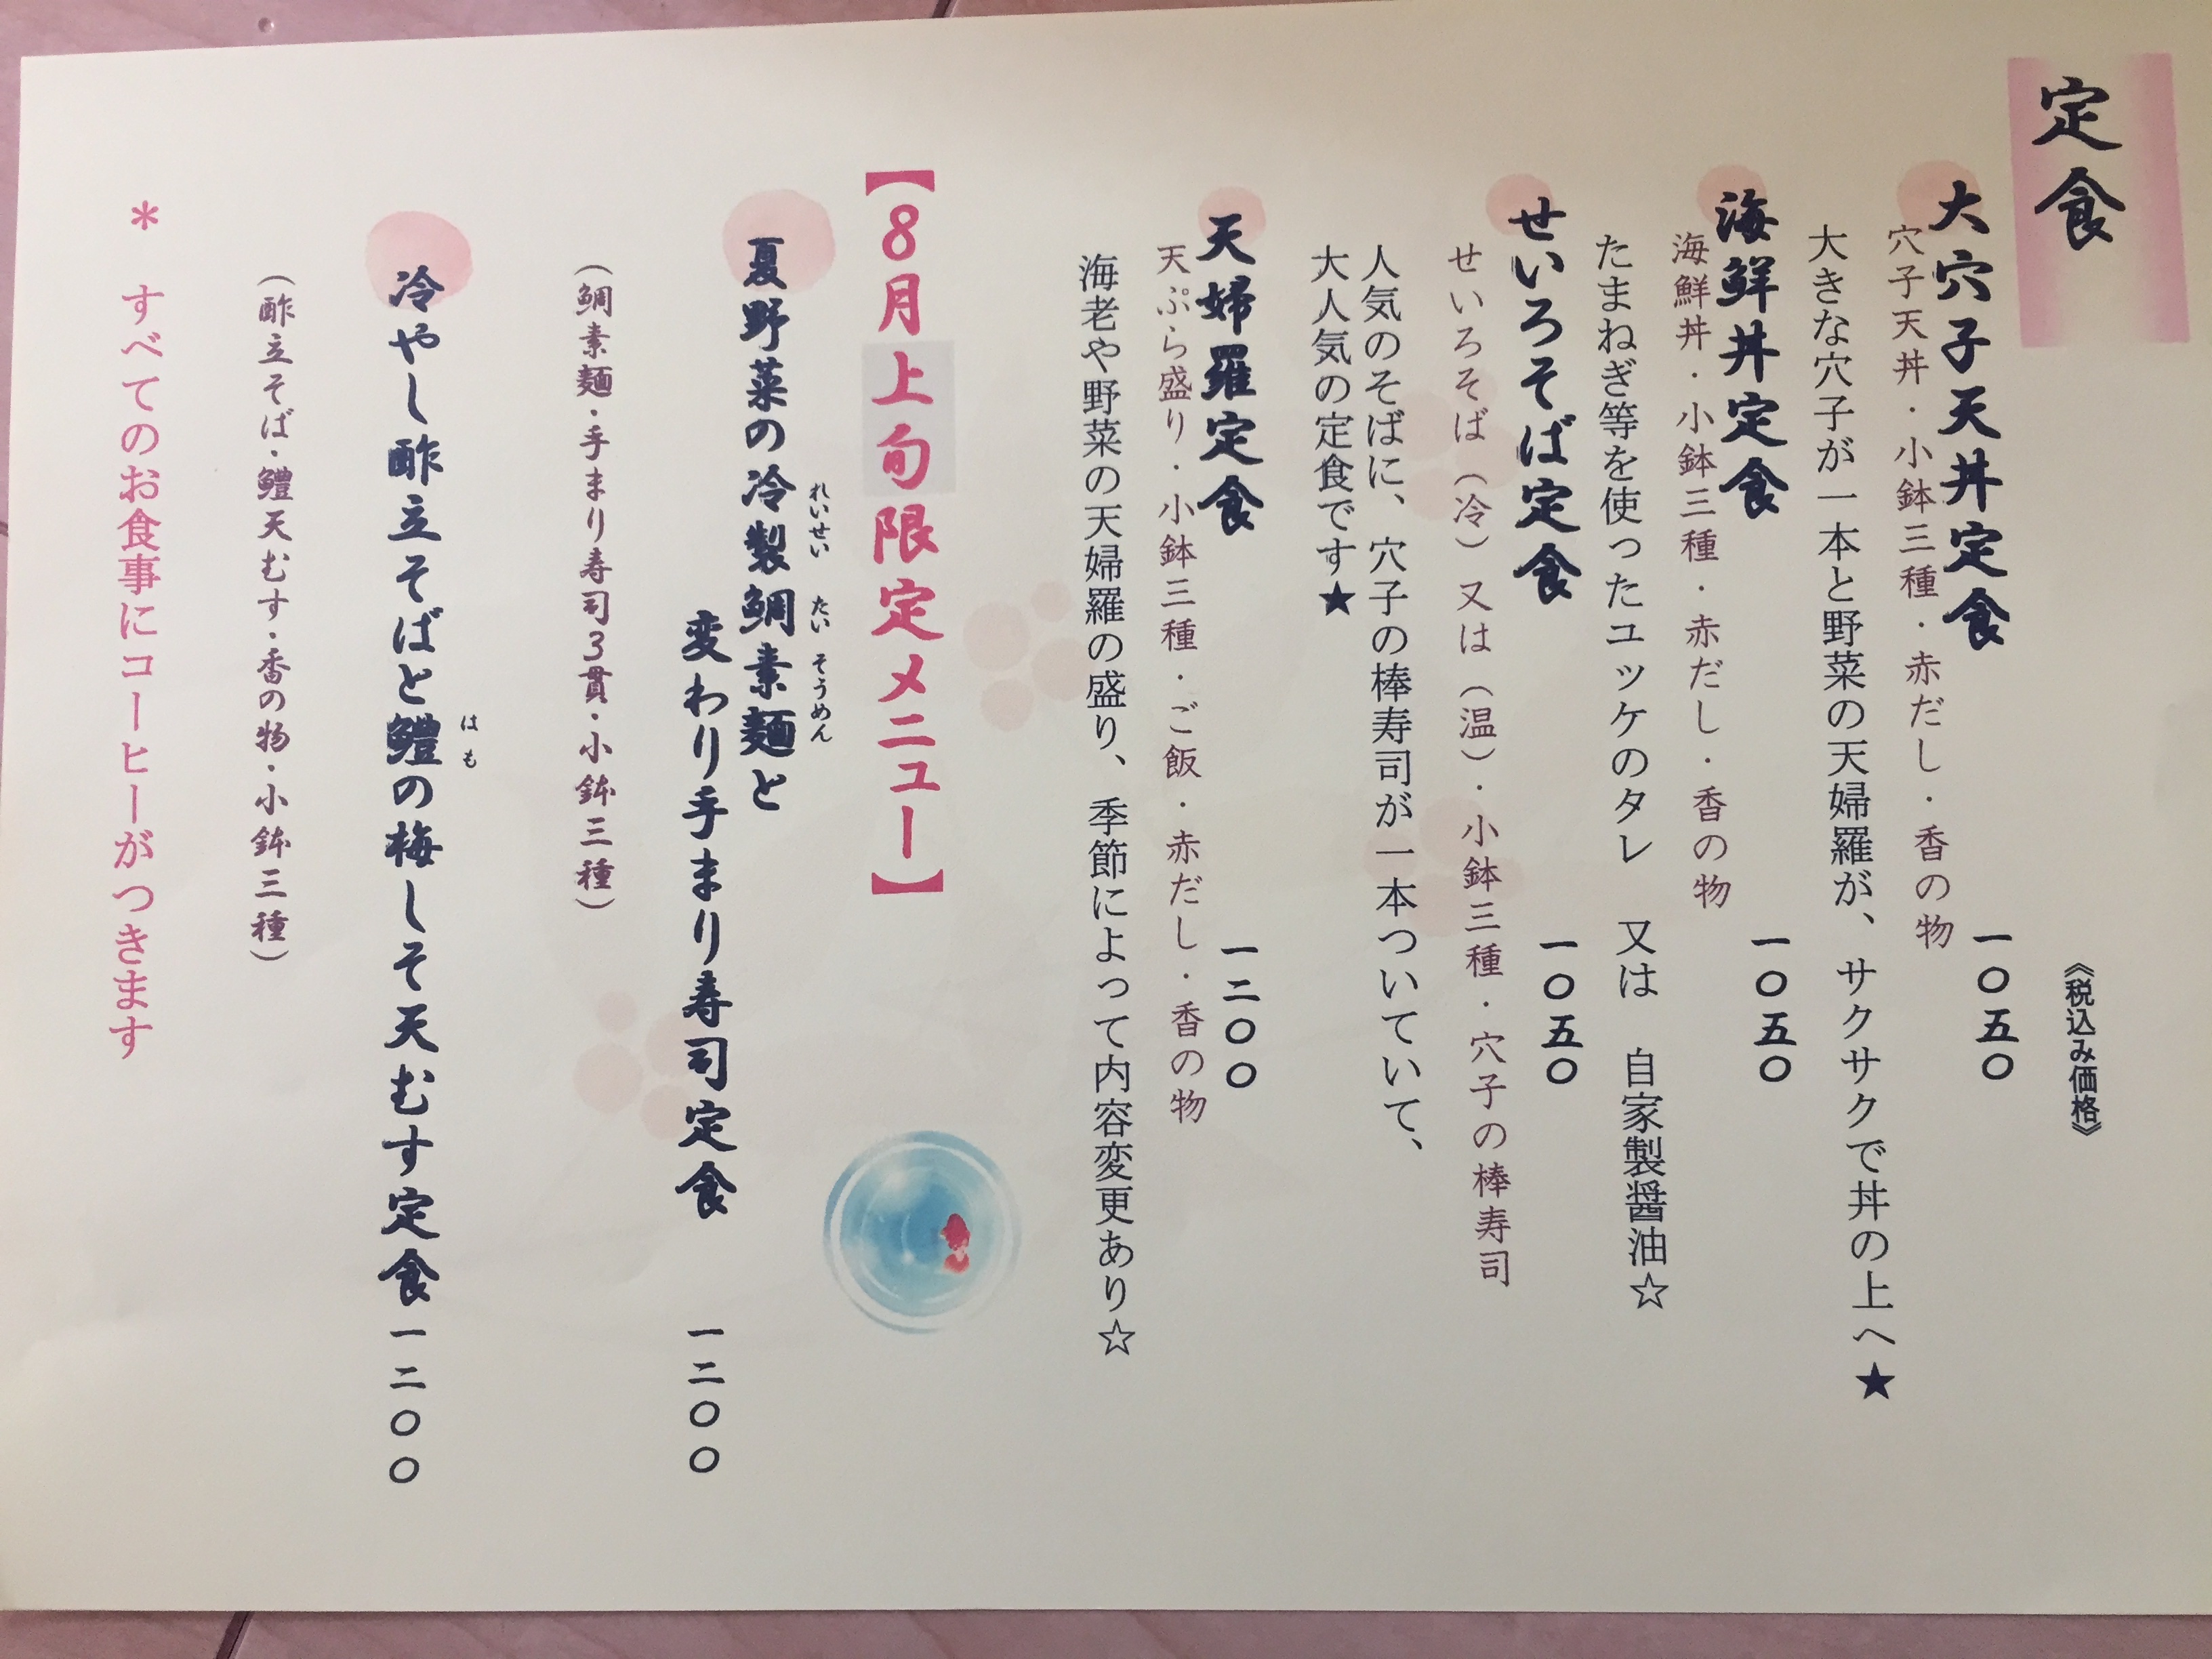 定食
《税込み価格》
大穴子天丼定食 一〇五〇
穴子天丼・小鉢三種・赤だし・香の物
大きな穴子が一本と野菜の天婦羅が、サクサクで丼の上へ★
海鮮丼定食 一〇五〇
海鮮丼・小鉢三種・赤だし・香の物
たまねぎ等を使ったユッケのタレ 又は 自家製醤油☆
せいろそば定食 一〇五〇
せいろそば(冷)又は(温)・小鉢三種・穴子の棒寿司
人気のそばに、穴子の棒寿司が一本ついていて、
大人気の定食です★
天婦羅定食 一二〇〇
天ぷら盛り・小鉢三種・ご飯・赤だし・香の物
海老や野菜の天婦羅の盛り、季節によって内容変更あり☆
【8月上旬限定メニュー】
れいせい たい そうめん
夏野菜の冷製鯛素麺と
変わり手まり寿司定食 一二〇〇
(鯛素麺・手まり寿司3貫・小鉢三種)
はも
冷やし酢立そばと鱧の梅しそ天むす定食 一二〇〇
(酢立そば・鱧天むす・香の物・小鉢三種)
＊ すべてのお食事にコーヒーがつきます